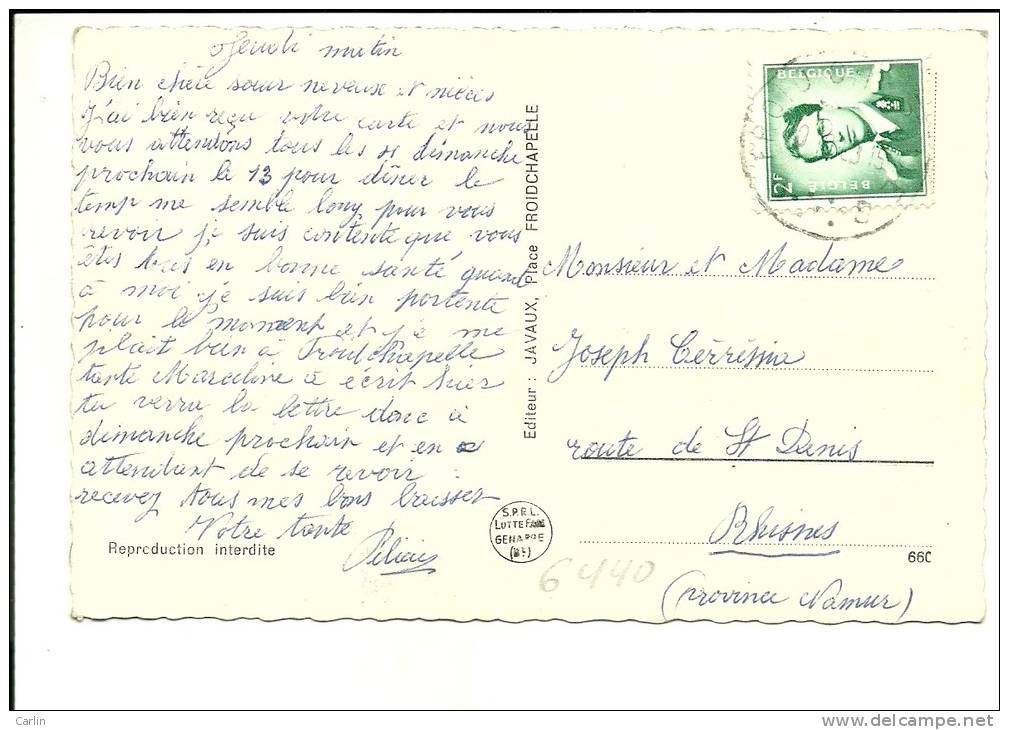 Jeudi matin
Bien chère sœur neveuse et nièces
J'ai bien reçu votre carte et nous
vous attendons tous les dimanche
prochain le 13 pour dîner le
temp me semble long pour vous
revoir je suis contente que vous
êtes tous en bonne santé quand
à moi je suis bien portente
pour le moment et je me
plait bien à Froidchapelle
tante Marceline à écrit hier
tu verra la lettre donc à
dimanche prochain et en
attendant de se revoir
recevez tous mes bons baisser
Votre tante
Reproduction interdite
Editeur : JAVAUX, Place FROIDCHAPELLE
S.P.R.L.
LUTTE
GENAPPE
BELGIQUE
2F
BELGIË
Monsieur et Madame
Joseph
route de St Denis
Rhisnes
(Province Namur)
660
6440
Carlin
www.delcampe.net